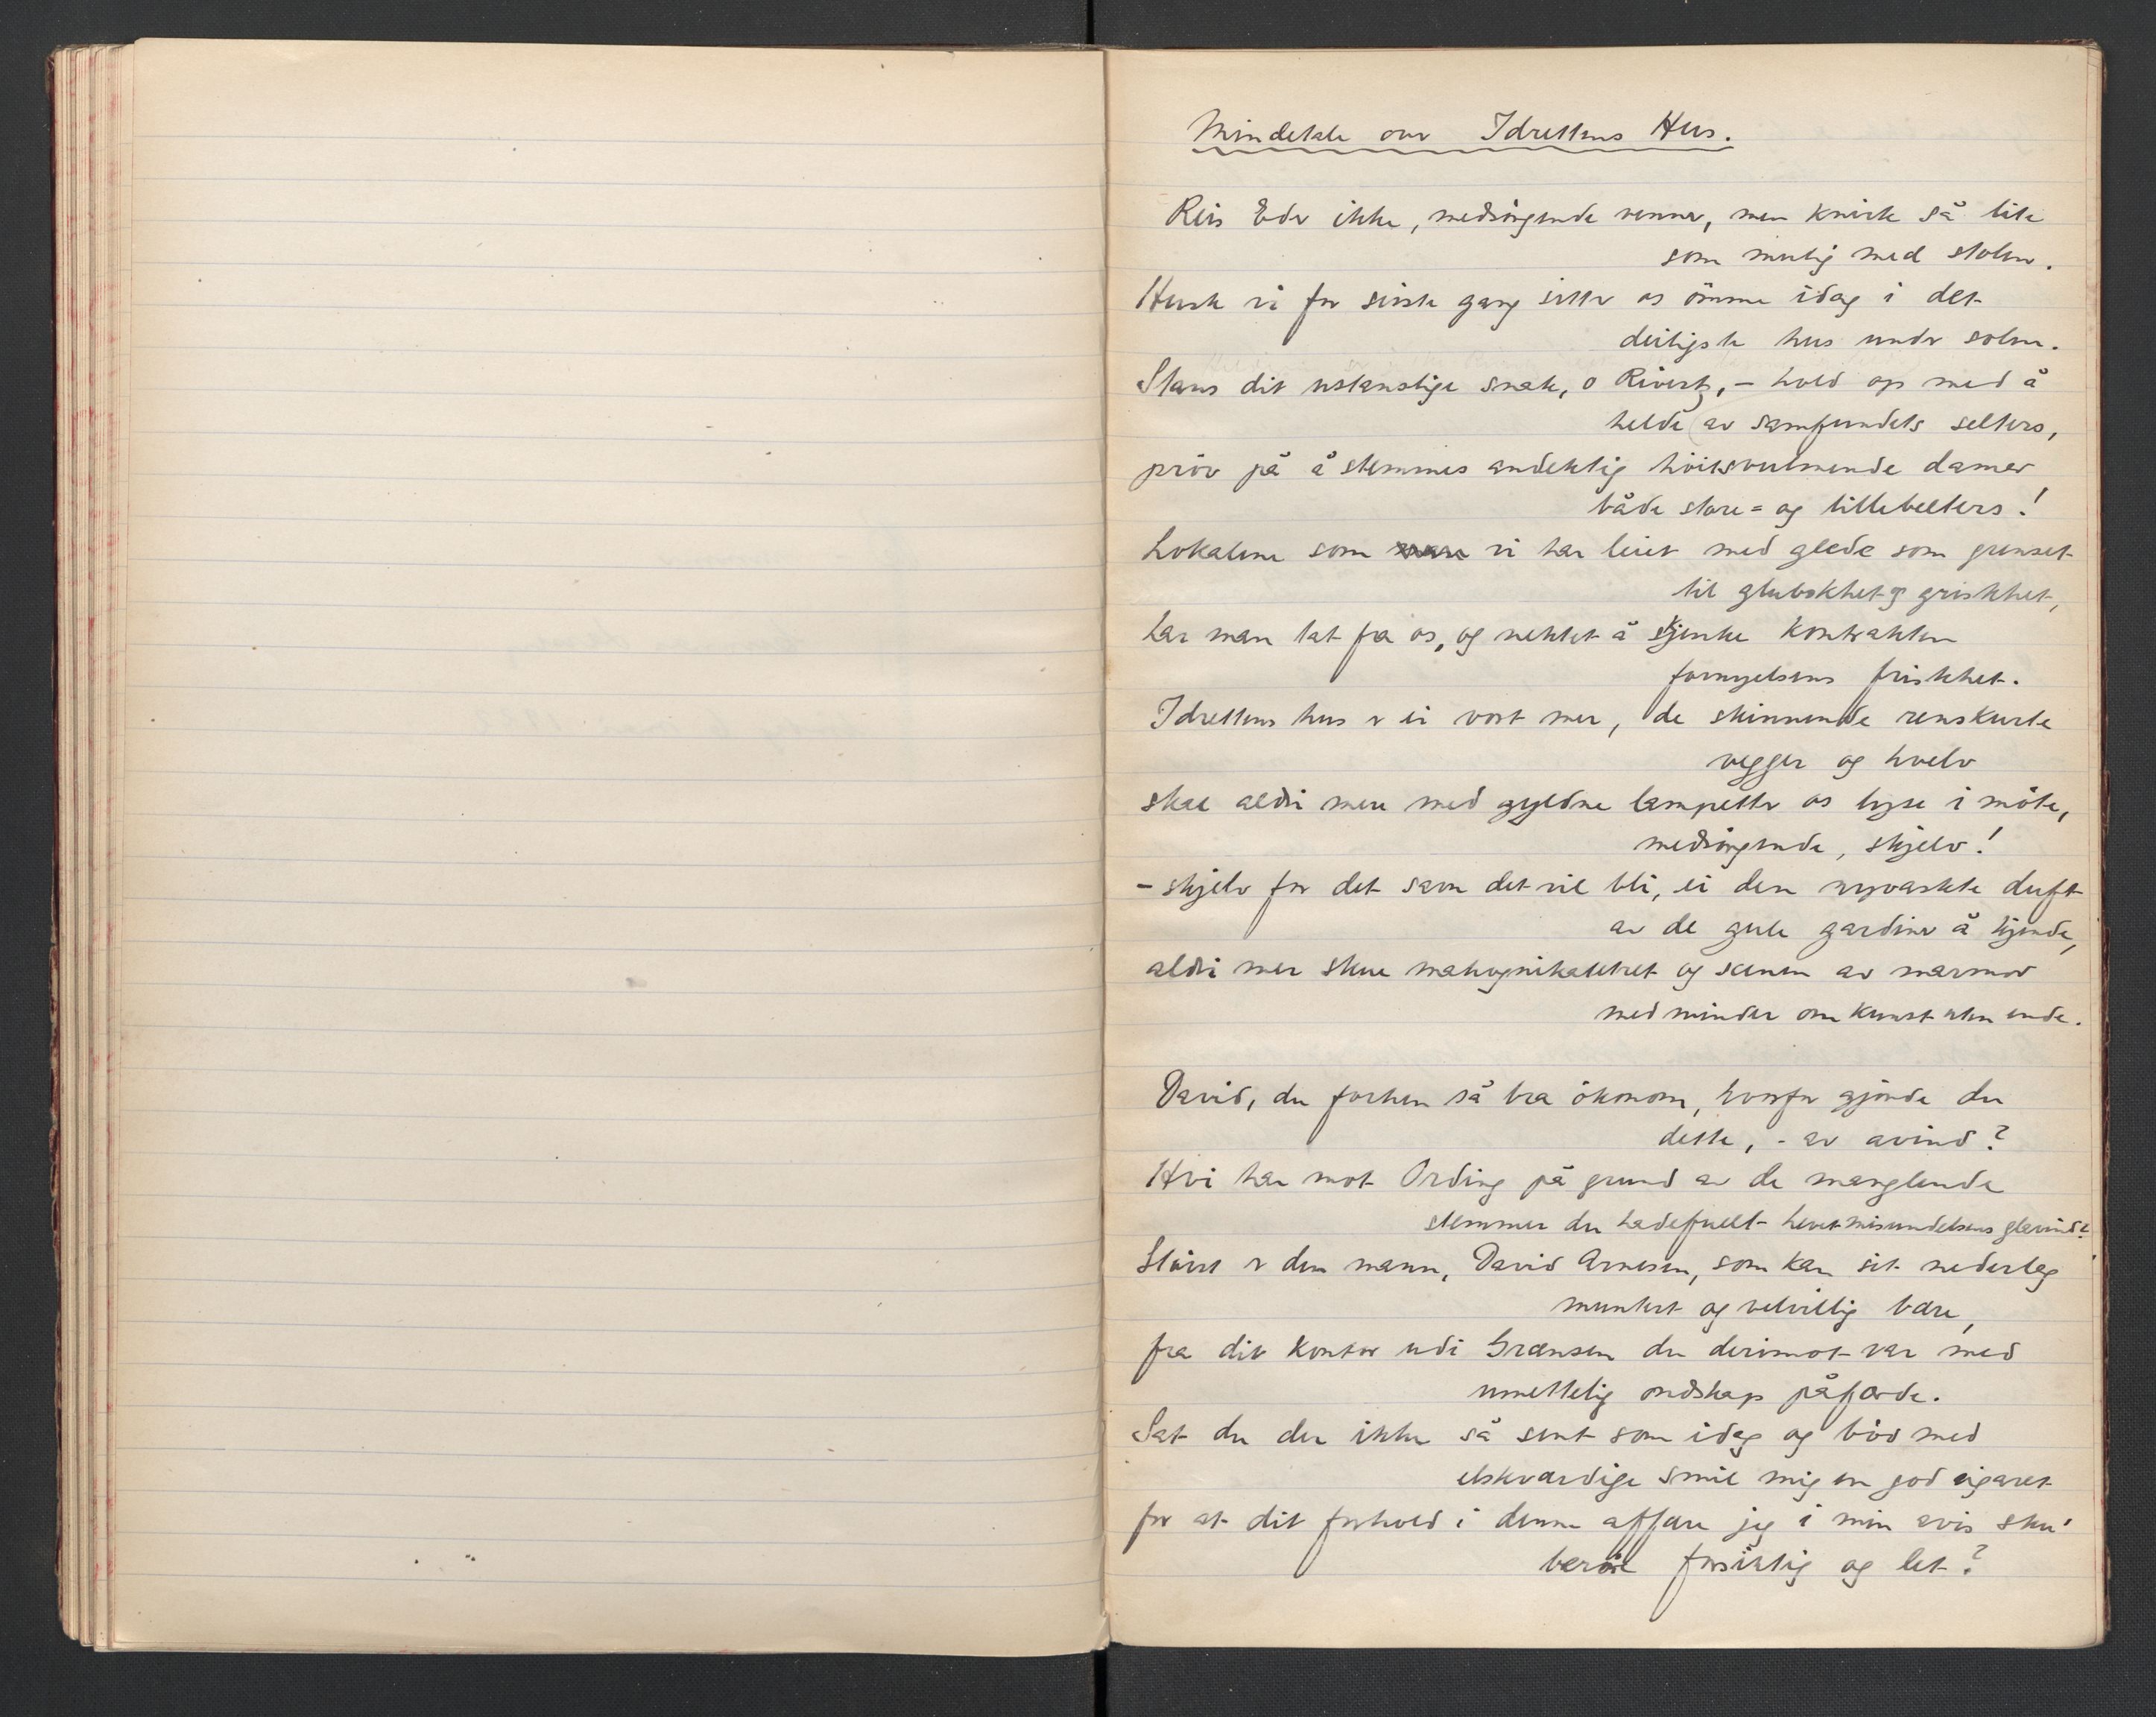 Mindetale over Idrettens Hus.
Reis Eder ikke, medsörgende venner, men knirk så lite
som mulig med stolen.
Husk vi for siste gang sitter os ömme idag i det
deiligste hus under solen.
Stans dit ustanslige snak, o Rivertz, – hold op med å
helde av samfundets selters,
pröv på å stemmes andektig höitsvulmende damer
både store= og lillebelters!
Lokalene som vi har leiet med glede som grenset
til glubskhet og griskhet,
har man tat fra os, og nektet å skjenke kontrakten
fornyelsens friskhet.
Idrettens hus er ei vort mer, de skinnende renskurte
vegger og hvelv
skal aldri mere med gyldne lampetter os lyse i möte,
medsörgende, skjelv!
– skjelv for det som det vil bli, ei den nyvaskte duft
av de gule gardiner å kjende,
aldri mer skue mahognikatetret og scenen av marmor
med minder om kunst uten ende.
David, du forhen så bra ökonom, hvorfor gjorde du
dette, – av avind?
Hvi har mot Ording på grund av de manglende
stemmer du hadefuldt hevet misundelsens glavind?
Störst er den mann, David Arnesen, som kan sit nederlag
muntert og velvillig bære,
fra dit kontor udi Grænsen du derimot var med
umettelig ondskap påfærde.
Sat du der ikke så sent som idag og böd med
elskværdige smil mig en god cigaret
for at dit forhold i denne affære jeg i min avis sku'
beröre forsiktig og let?